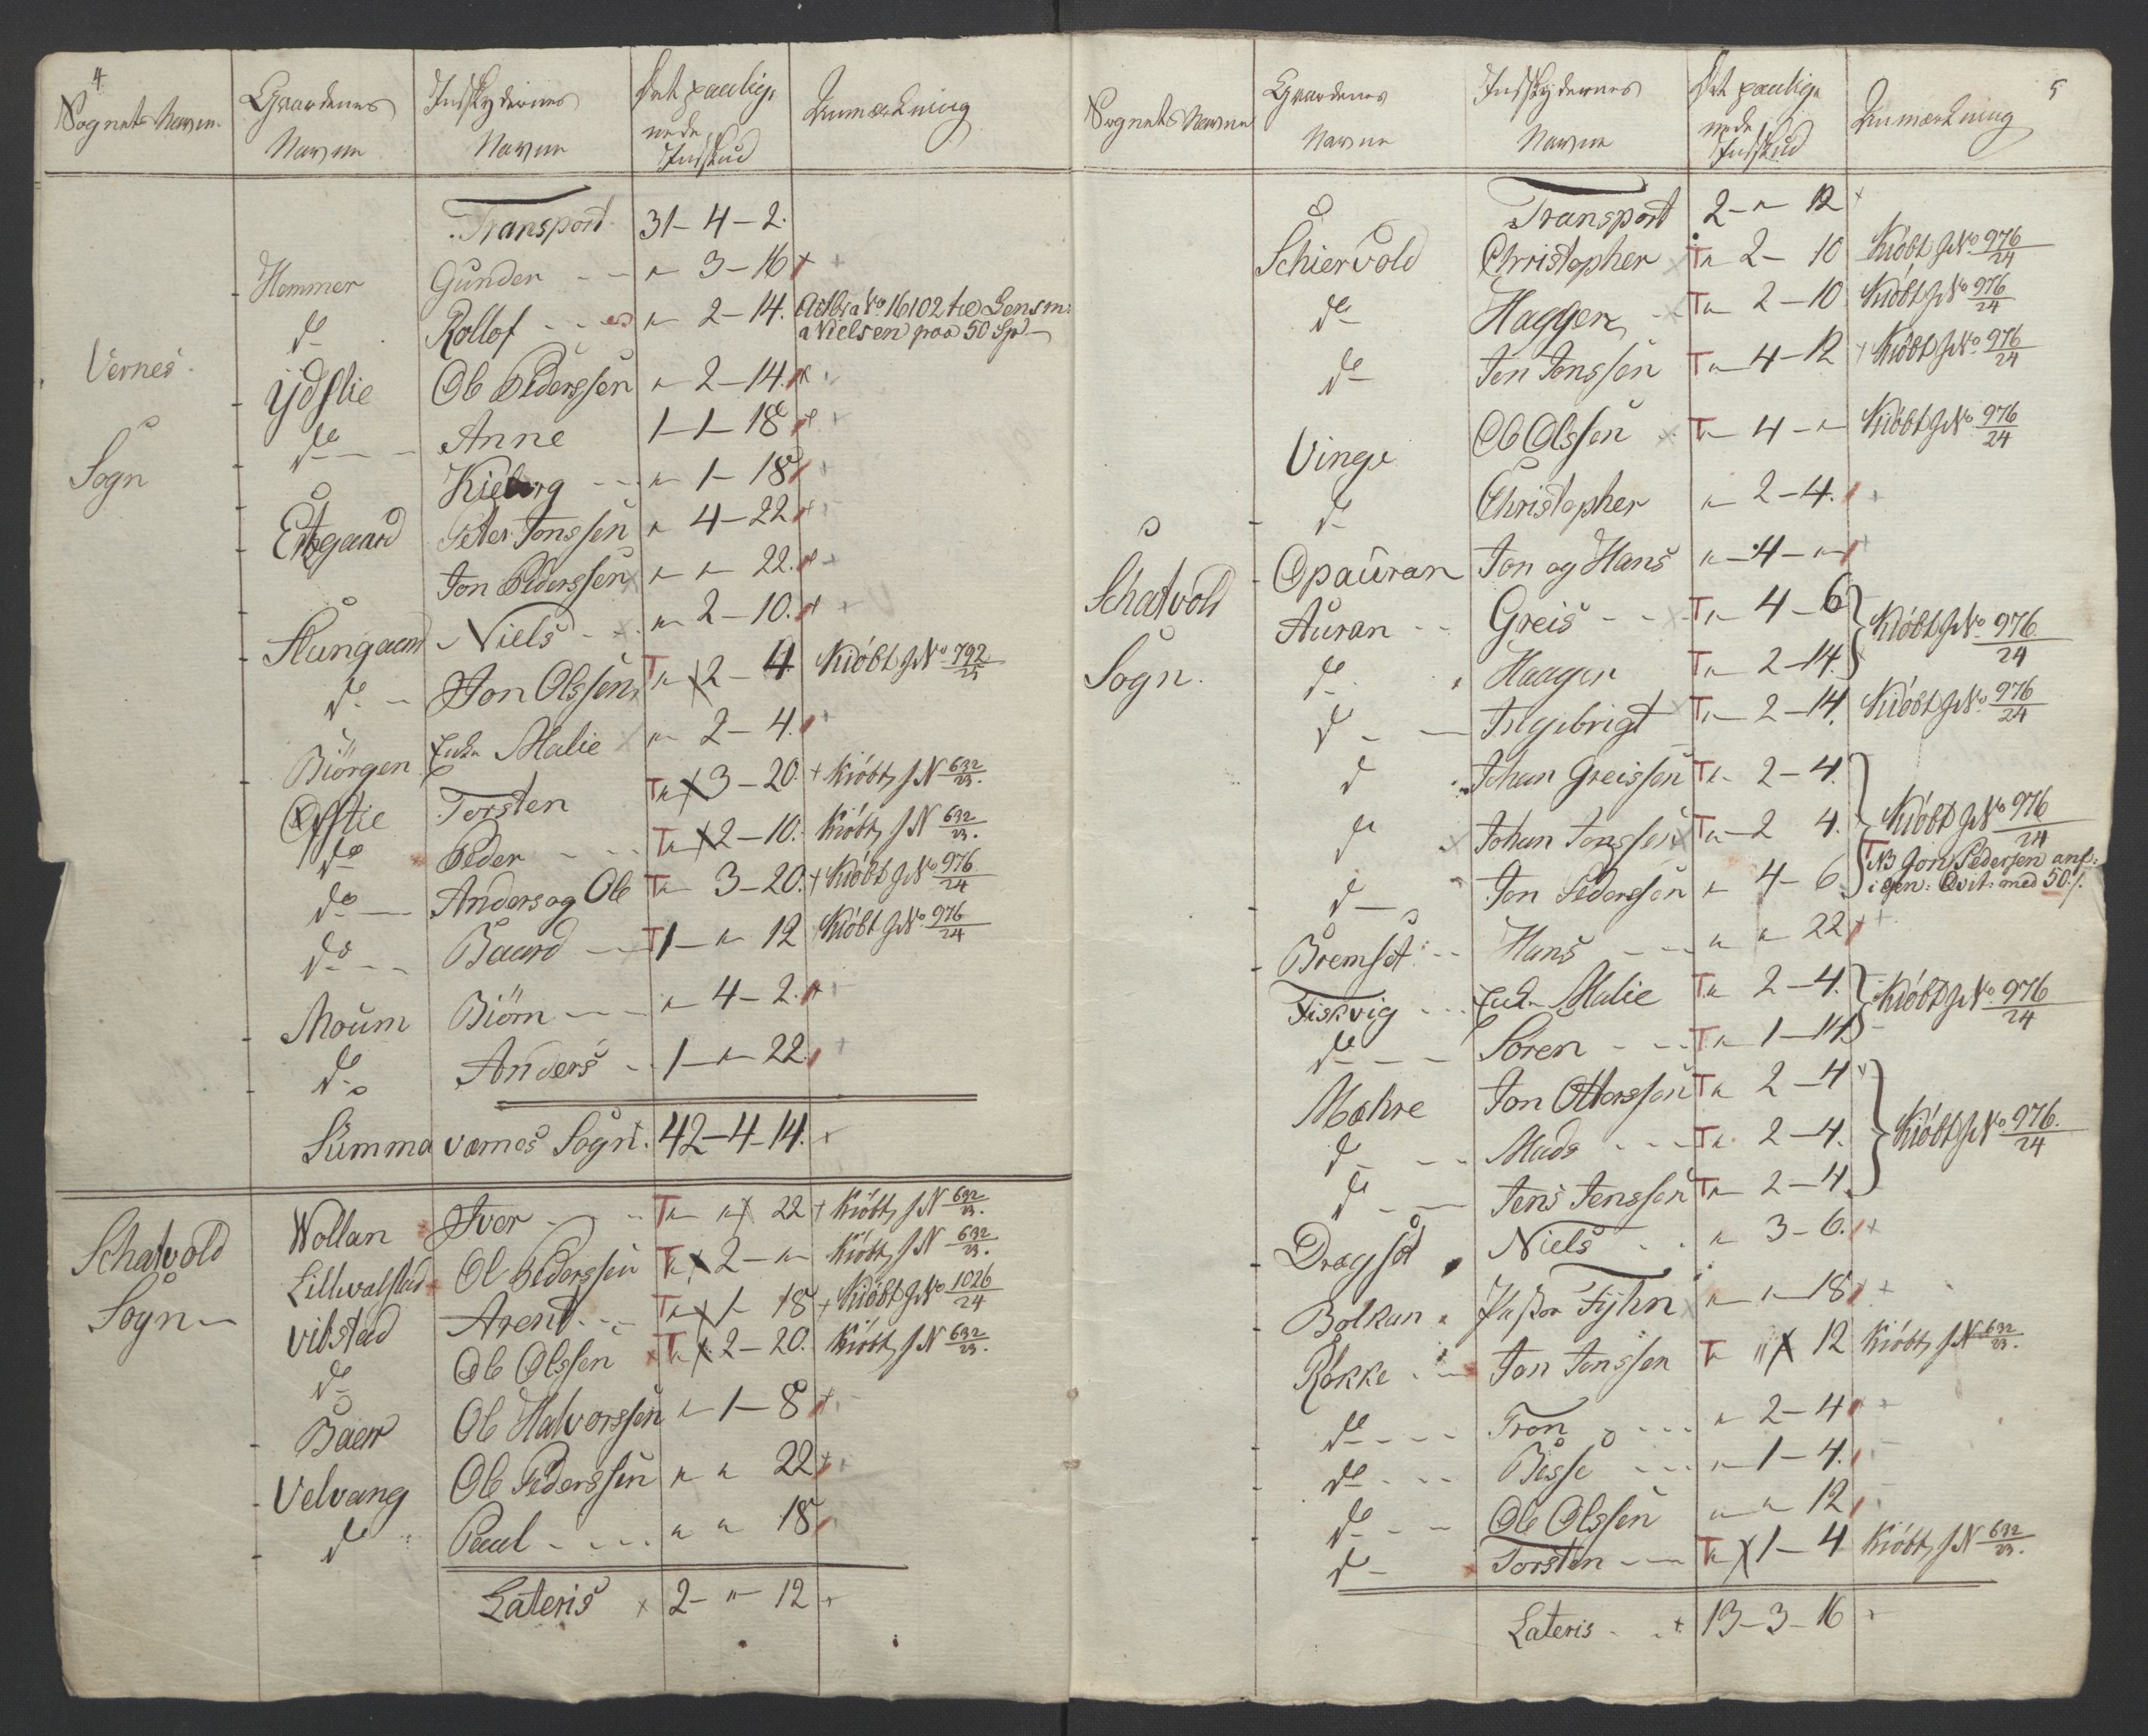 4
Sognets Navn. Gaardenes Navn Indskydernes Navn Det paalignede Indskud Anmærkning
Transport 31 – 4 – 2.
Hommer Gunder – – " 3 – 16 +
do Rollof – – " 2 – 14. No 16102 Lensm: Nielsen paa 50 Sp
Vernes Sogn
Ydstie Ole Pederssen " 2 – 14. +
do – – Anne 1 – 1 – 18 +
Kieberg – – " 1 – 18 +
Peter Jonssen " 4 – 22 +
Jon Pederssen " " 22. +
Niels – – " 2 – 10. +
do – Jon Olssen T " 2 – 4 Kiöbt J No 792/25
Biörgen Enke Malie " 2 – 4.
Øfstie Torsten T " 3 – 20. + Kiöbt, J N 632/23.
do Peder – – T " 2 – 10. Kiöbt, J N 632/23.
do – Anders og Ole T " 3 – 20. + Kiöbt J No 976/24
do – – Baard – T 1 – " 12 Kiöbt J No 976/24
Moum Biörn – – " 4 – 2. +
do Anders – – 1 – " 22.
Summaværnes Sogn. 42 – 4 – 14.
Schatvold Sogn –
Wollan Iver – – T " " 22 + Kiöbt, J N 632/23.
Lillevalstad Ol Pederssen T " 2 – " Kiöbt, J N 632/23.
vibstad Arent – – T " 1 18 + Kiöbt J No 1026/24
do Ole Olssen T " 2 – 20. Kiöbt, J N 632/23.
Baer Ole Halvorssen " 1 – 8 +
Velvang Ole Pederssen " " 22 +
do Paul – – " " 18
Lateris 2 – " 12
5
Sognets Navne Gaardenes Navne Indskydernes Navne Det paalignede Indskud Anmærkning
Transport 2 – " 12
Schiervold Christopher T " 2 – 10 Kiöbt J No 976/24
do Haggen T " 2 – 10 Kiöbt J No 976/24
do Jon Jonssen T " 4 – 12 + Kiöbt J No 976/24
Vinge Ole Olssen T " 4 – " Kiöbt J No 976/24
do Christopher " 2 – 4.
Schatvold Sogn.
Opauran Jon og Hans " 4 – "
Auran – – Greis – – T " 4 – 6 } Kiöbt J No 976/24
do Haagen T " 2 – 14.
do – – Ingebrigt T " 2 – 14. Kiöbt J No 976/24
do Johan Greissen T " 2 – 4. } Kiöbt J No 976/24
do Johan Jonssen T " 2 4.
do – Jon Pederssen " 4 – 6 NB Jon Pedersen anf: i gen: Qvit: med 50 /.
Bremset – – Hans – – " " 22 +
Fiskvig – – Enke Malie T " 2 – 4. } Kiöbt J No 976/24
do – – Sören – – T " 1 – 14
Mæhre Jon Ottorssen T " 2 – 4 } Kiöbt J No 976/24
do – – Mads – – T " 2 – 4.
do – – Jens Jenssen T " 2 – 4.
Dragset Niels – – " 3 – 6. +
Bolkan Pastor Fyhn " " 18 +
Røkke – – Jon Jonssen T " " 12 Kiöbt, J N 632/23.
do – – – Tron – – – " 2 – 4
do – – – Besse – – " 1 – 4.
do – – Ole Olssen " " 12
do – Torsten – – T " 1 – 4 Kiöbt, J N 632/23.
Lateris – – 13 – 3 – 16